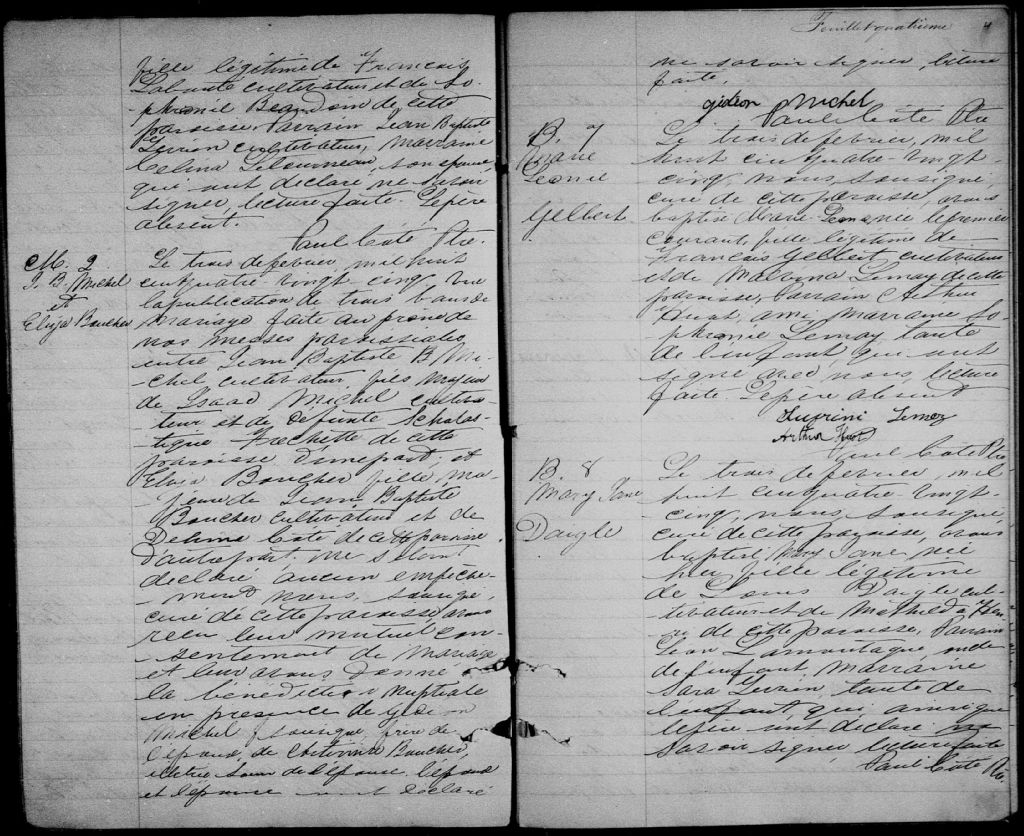 fille légitime de Francois
Labonté cultivateur et de So-
phronie Beaudoin de cette
paroisse. Parrain Jean Baptiste
cultivateur, marraine
Celina Letourneau, son épouse,
qui ont déclaré ne savoir
signer, lecture faite. Le père
absent.
Paul Coté Ptre.
M. 2
J. B. Michel
et
Eliza Boucher
Le trois de fevrier, mil huit
cent quatre vingt cinq, vu
la publication de trois bans de
mariage faite au prone de
nos messes paroissiales,
entre Jean Baptiste B. Mi-
chel, cultivateur, fils majeur
de Isaac Michel cultiva-
teur et de defunte Schalas-
tique Frechette de cette
paroisse d'une part, et
Eliza Boucher fille ma-
jeure de Jean Baptiste
Boucher cultivateur et de
Delima Coté de cette paroisse
d'autre part ne s'étant
declaré aucun empêche-
ment nous, soussigné,
curé de cette paroisse, avons
recu leur mutuel con-
sentement de mariage
et leur avons donné
la benediction nuptiale
en presence de Gideon
Michel, soussigné, frere de
l'époux, de Boucher,
soeur de l'épouse, l'époux
et l'épouse ont déclaré
Feuillet quatrieme 4
ne savoir signer, lecture
faite.
gideon Michel
Paul Coté Ptre
B. 7
Marie
Leonie
Gelbert
Le trois de fevrier, mil
huit cent quatre-vingt-
cinq, nous, soussigné,
curé de cette paroisse, avons
baptisé Marie née le premier
courant, fille légitime de
Francois Gelbert, cultivateur
et de Malvina Lemay de cette
paroisse, Parrain Arthur
Huot, ami marraine So-
phronie Lemay, tante
de l'enfant, qui ont
signé avec nous, lecture
faite. Le père absent
Lemay
Arthur Huot
Paul Coté Ptre
B. 8
Mary Jane
Daigle
Le trois de fevrier, mil
huit cent quatre-vingt-
cinq, nous, soussigné,
curé de cette paroisse, avons
baptisé Mary Jane née
hier fille légitime
de Louis Daigle cul-
tivateur et de
de cette paroisse, Parrain
Léon Lamontagne, oncle
de l'enfant, marraine
Sara, tante de
l'enfant qui ainsi que
le père ont déclaré ne
savoir signer, lecture faite
Paul Coté Ptre.